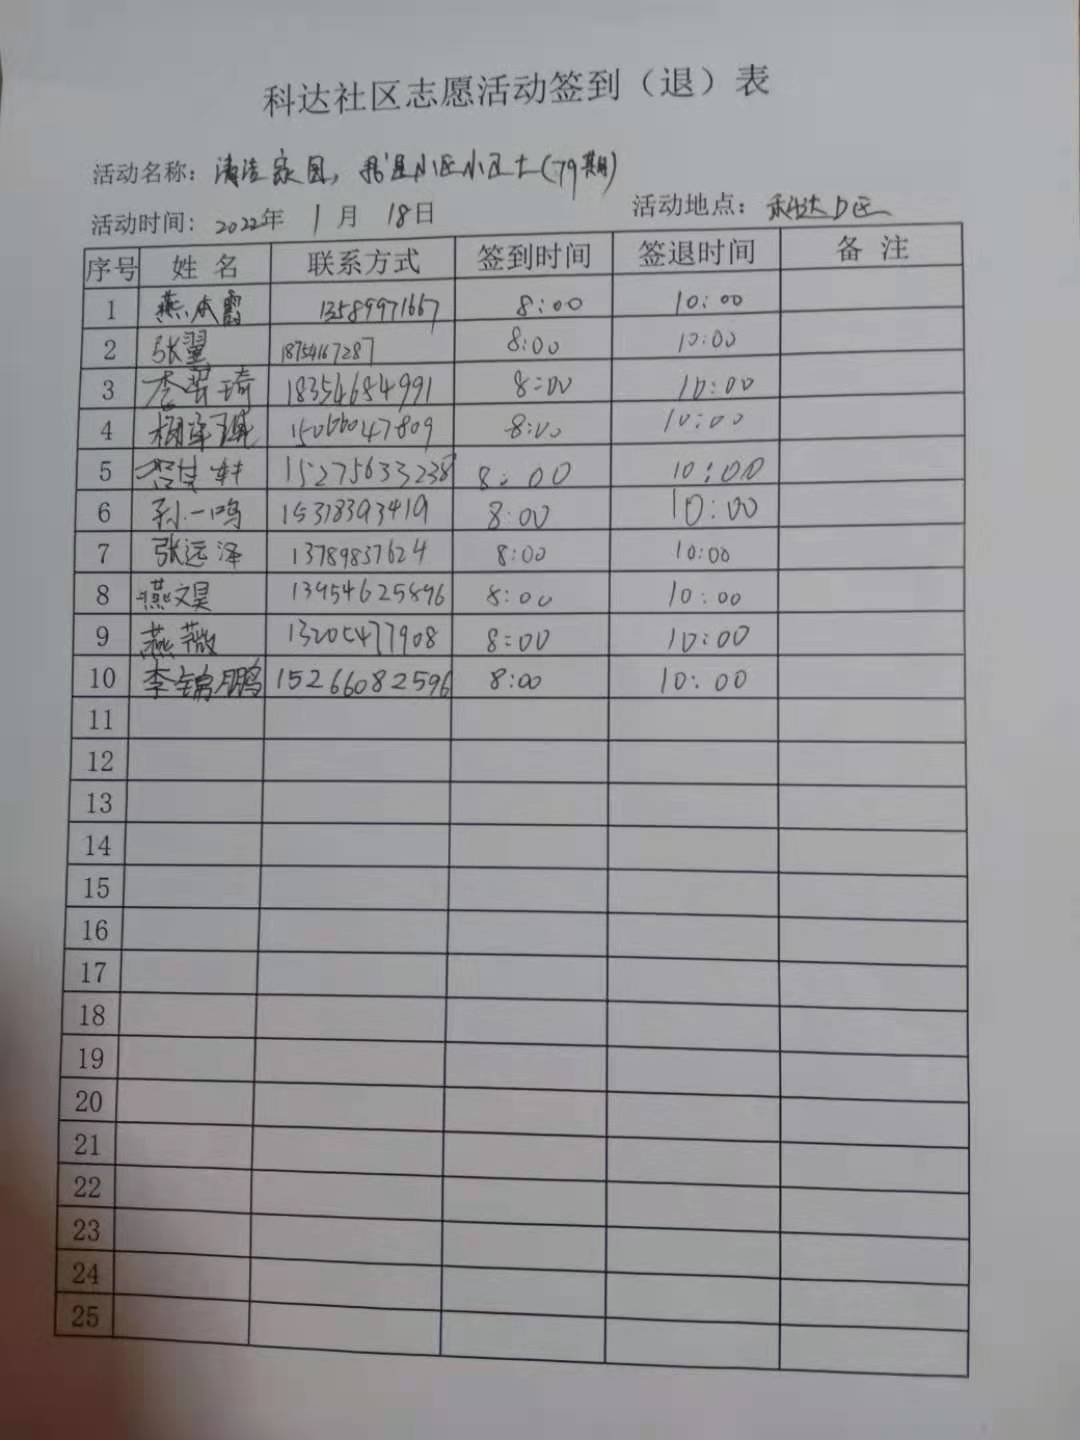 科达社区志愿活动签到（退）表
活动名称：清洁家园，我是小区小卫士（79期）
活动时间：2022年 1月 18日 活动地点：科达D区
序号 姓名 联系方式 签到时间 签退时间 备注
1 燕本霞 13589971667 8:00 10:00
2 张翼 18754167287 8:00 10:00
3 18354684991 8:00 10:00
4 15066047809 8:00 10:00
5 15275633238 8:00 10:00
6 孙一鸣 15318393419 8:00 10:00
7 张远泽 13789837624 8:00 10:00
8 燕文昊 13954625896 8:00 10:00
9 燕薇 13205477908 8:00 10:00
10 李锦鹏 15266082596 8:00 10:00
11
12
13
14
15
16
17
18
19
20
21
22
23
24
25